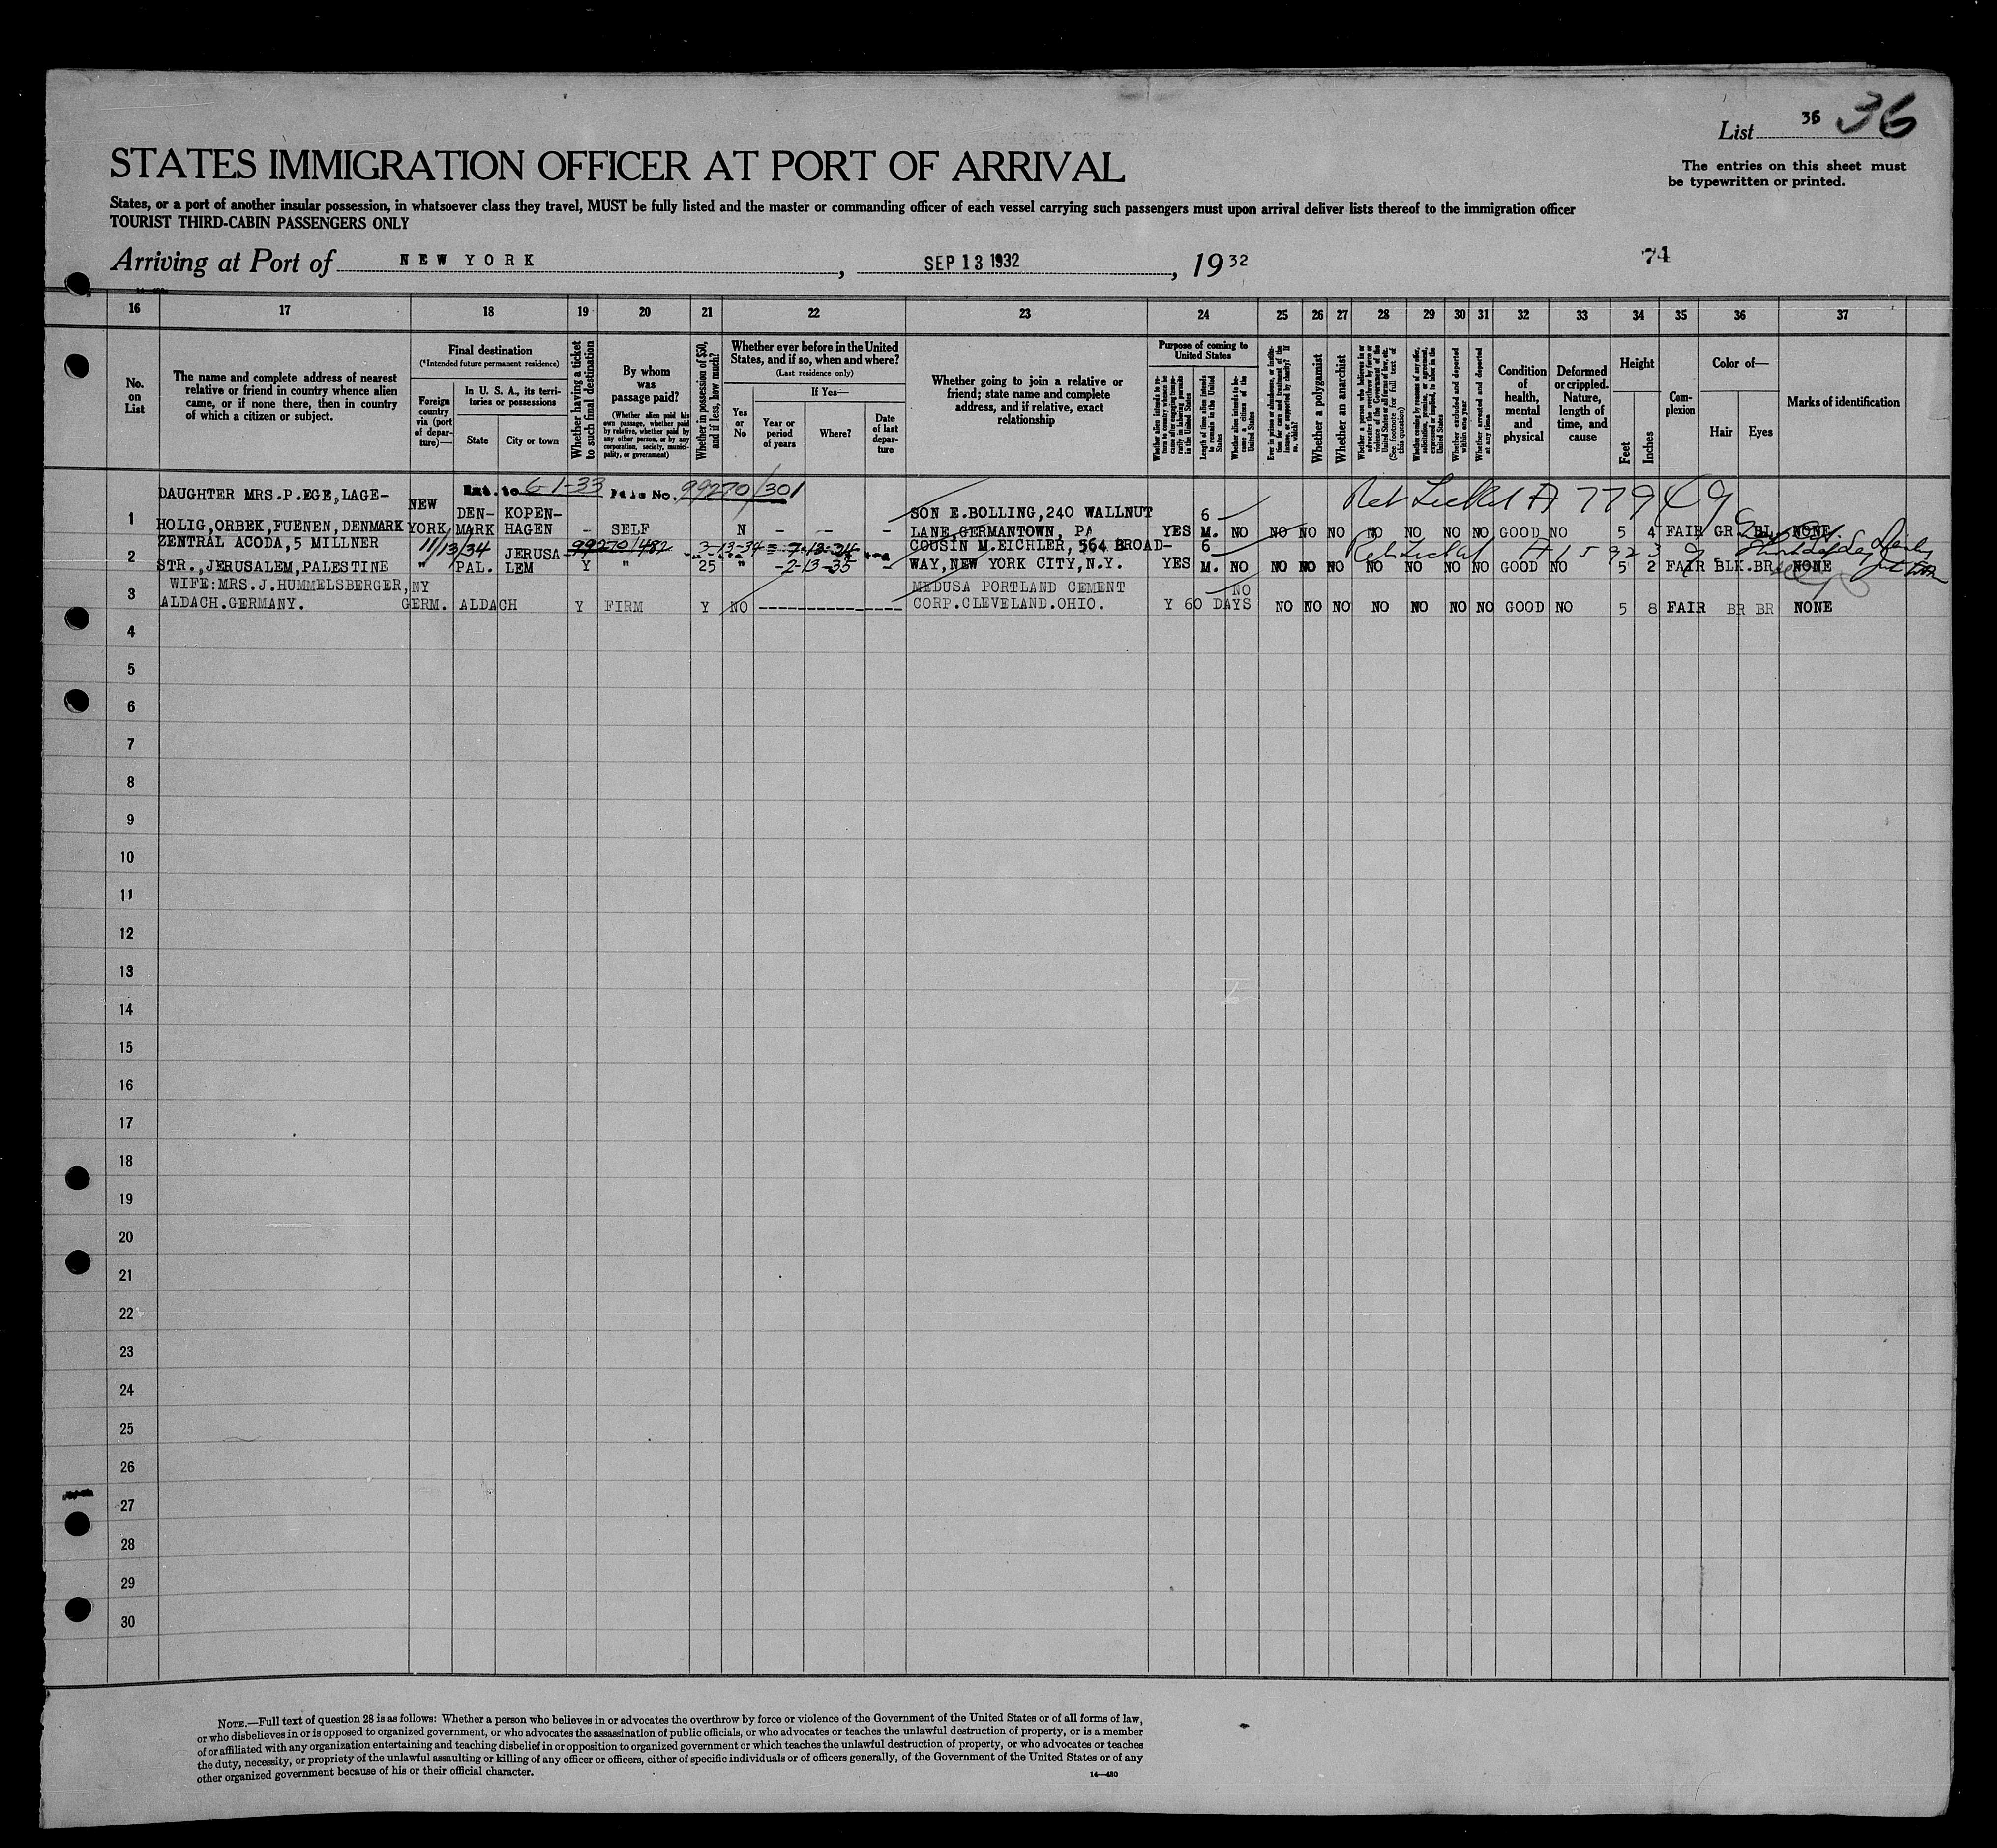 List 36 36
The entries on this sheet must
be typewritten or printed.
STATES IMMIGRATION OFFICER AT PORT OF ARRIVAL
States, or a port of another insular possession, in whatsoever class they travel, MUST be fully listed and the master or commanding officer of each vessel carrying such passengers must upon arrival deliver lists thereof to the immigration officer
TOURIST THIRD-CABIN PASSENGERS ONLY
Arriving at Port of NEW YORK, SEP 13 1932, 1932
74
16 17 18 19 20 21 22 23 24 25 26 27 28 29 30 31 32 33 34 35 36 37
No.
on
List
The name and complete address of nearest
relative or friend in country whence alien
came, or if none there, then in country
of which a citizen or subject.
Final destination
(*Intended future permanent residence)
Foreign
country
via (port
of depar-
ture)—
In U. S. A., its terri-
tories or possessions
State City or town
Whether having a ticket
to such final destination
By whom
was
passage paid?
(Whether alien paid his
own passage, whether paid
by relative, whether paid by
any other person, or by any
corporation, society, munici-
pality, or government)
Whether in possession of $50,
and if less, how much?
Whether ever before in the United
States, and if so, when and where?
(Last residence only)
Yes
or
No
If Yes—
Year or
period
of years
Where?
Date
of last
depar-
ture
Whether going to join a relative or
friend; state name and complete
address, and if relative, exact
relationship
Purpose of coming to
United States
Whether alien intends to re-
turn to country whence he
came after engaging tempo-
rarily in laboring pursuits
in the United States
Length of time alien intends
to remain in the United
States
Whether alien intends to be-
come a citizen of the
United States
Ever in prison or almshouse, or institu-
tion for care and treatment of the
insane, or supported by charity? If
so, which?
Whether a polygamist
Whether an anarchist
Whether a person who believes in or
advocates the overthrow by force or
violence of the Government of the
United States or all forms of law, etc.
(See footnote for full text of
this question)
Whether coming by reason of any offer,
solicitation, promise, or agreement,
expressed or implied, to labor in the
United States
Whether excluded and deported
within one year
Whether arrested and deported
at any time
Condition
of
health,
mental
and
physical
Deformed
or crippled.
Nature,
length of
time, and
cause
Height
Feet Inches
Com-
plexion
Color of—
Hair Eyes
Marks of identification
Ext. to 6-1-33 File No. 99270/301
DAUGHTER MRS.P.EGE,LAGE- NEW DEN- KOPEN- SON E.BOLLING,240 WALLNUT 6 Ret Ticket A 77949
1 HOLIG,ORBEK,FUENEN,DENMARK YORK, MARK HAGEN - SELF N - - - LANE,GERMANTOWN, PA YES M. NO NO NO NO NO NO NO NO GOOD NO 5 4 FAIR GR BL NONE
ZENTRAL ACODA,5 MILLNER 11/13/34 JERUSA- 99270/482 3-13-34 7-13-34 COUSIN M.EICHLER, 564 BROAD- 6 Ret Ticket A 15923
2 STR.,JERUSALEM,PALESTINE " PAL. LEM Y " 25 " -2-13-35 - WAY,NEW YORK CITY,N.Y. YES M. NO NO NO NO NO NO NO NO GOOD NO 5 2 FAIR BLK.BR. NONE
WIFE:MRS.J.HUMMELSBERGER, NY MEDUSA PORTLAND CEMENT NO
3 ALDACH.GERMANY. GERM. ALDACH Y FIRM Y NO CORP.CLEVELAND.OHIO. Y 60 DAYS NO NO NO NO NO NO NO GOOD NO 5 8 FAIR BR BR NONE
4
5
6
7
8
9
10
11
12
13
14
15
16
17
18
19
20
21
22
23
24
25
26
27
28
29
30
NOTE.—Full text of question 28 is as follows: Whether a person who believes in or advocates the overthrow by force or violence of the Government of the United States or of all forms of law,
or who disbelieves in or is opposed to organized government, or who advocates the assassination of public officials, or who advocates or teaches the unlawful destruction of property, or is a member
of or affiliated with any organization entertaining and teaching disbelief in or opposition to organized government or which teaches the unlawful destruction of property, or who advocates or teaches
the duty, necessity, or propriety of the unlawful assaulting or killing of any officer or officers, either of specific individuals or of officers generally, of the Government of the United States or of any
other organized government because of his or their official character.
14—430